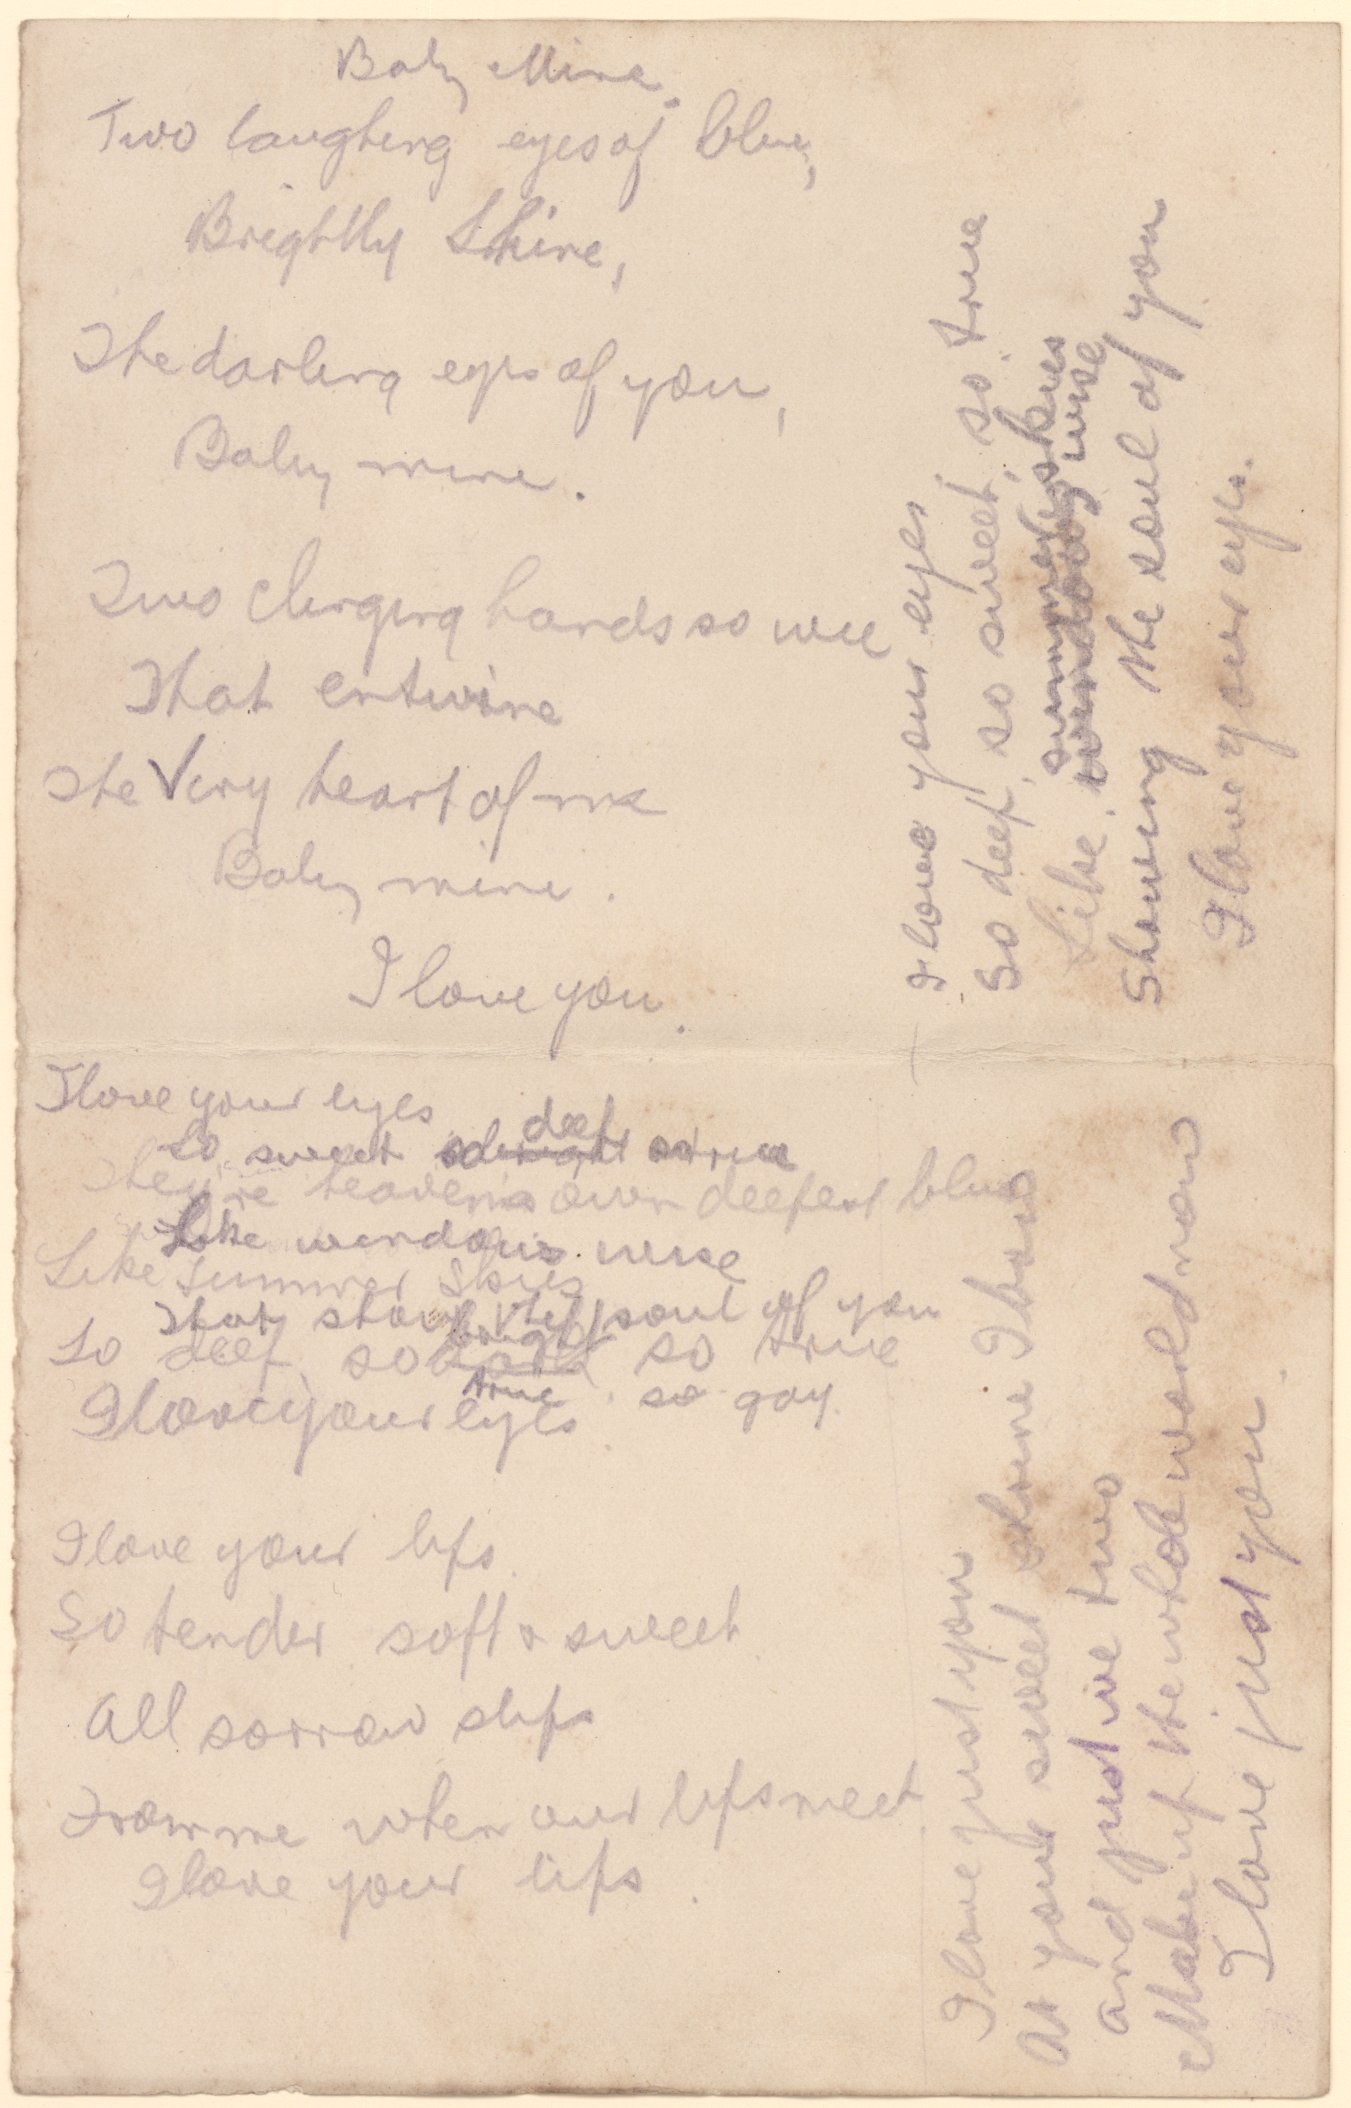 Baby Mine.
Two laughing eyes of blue,
Brightly Shine,
The darling eyes of you,
Baby mine.
Two clinging hands so wee
That entwine
The Very heart of me
Baby mine.
I love you.
I love your eyes
So sweet deep so true
They're heaven's own deepest blue
Like windows wise
Like summer skies
That show the soul of you
So deep so bright so true
true so gay
I love your eyes.
I love your lips
So tender soft & sweet
All sorrow slips
From me when our lips meet
I love your lips.
I love your eyes
So deep, so sweet, so true
summer skies
Like windows wise
Showing the soul of you
I love your eyes.
I love just you
At your sweet shrine I bow
and just we two
Make up the whole world now
I love just you.